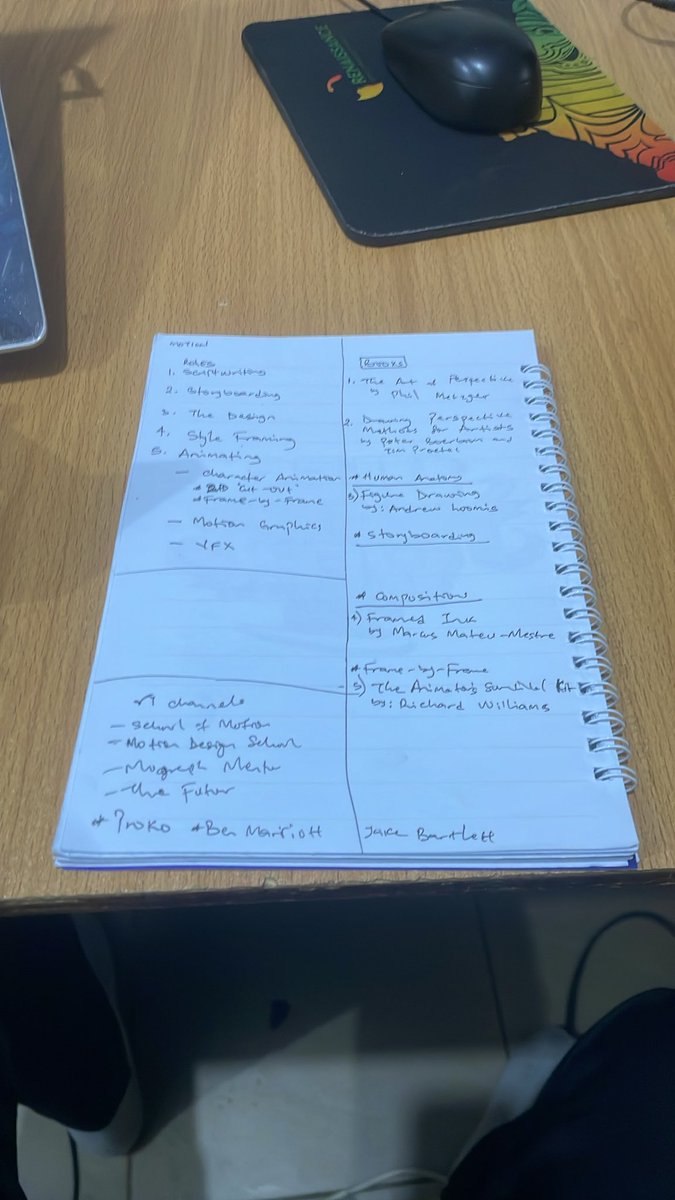 RENAISSANCE
Motion
Roles
1. Scriptwriting
2. Storyboarding
3. The Design
4. Style Framing
5. Animating
- Character Animation
# "Cut-Out"
# Frame-by-Frame
- Motion Graphics
- VFX
YT channels
- School of Motion
- Motion Design School
- Mograph Mentor
- The Futur
# Proko # Ben Marriott
Books
1. The Art of Perspective
by Phil Metzger
2. Drawing Perspective
Methods for Artists
by Peter and
Tim
# Human Anatomy
3) Figure Drawing
by: Andrew Loomis
# Storyboarding
# Composition
4) Framed Ink
by Marcus Mateu-Mestre
# Frame-by-Frame
5) The Animator's Survival Kit
by: Richard Williams
Jake Bartlett